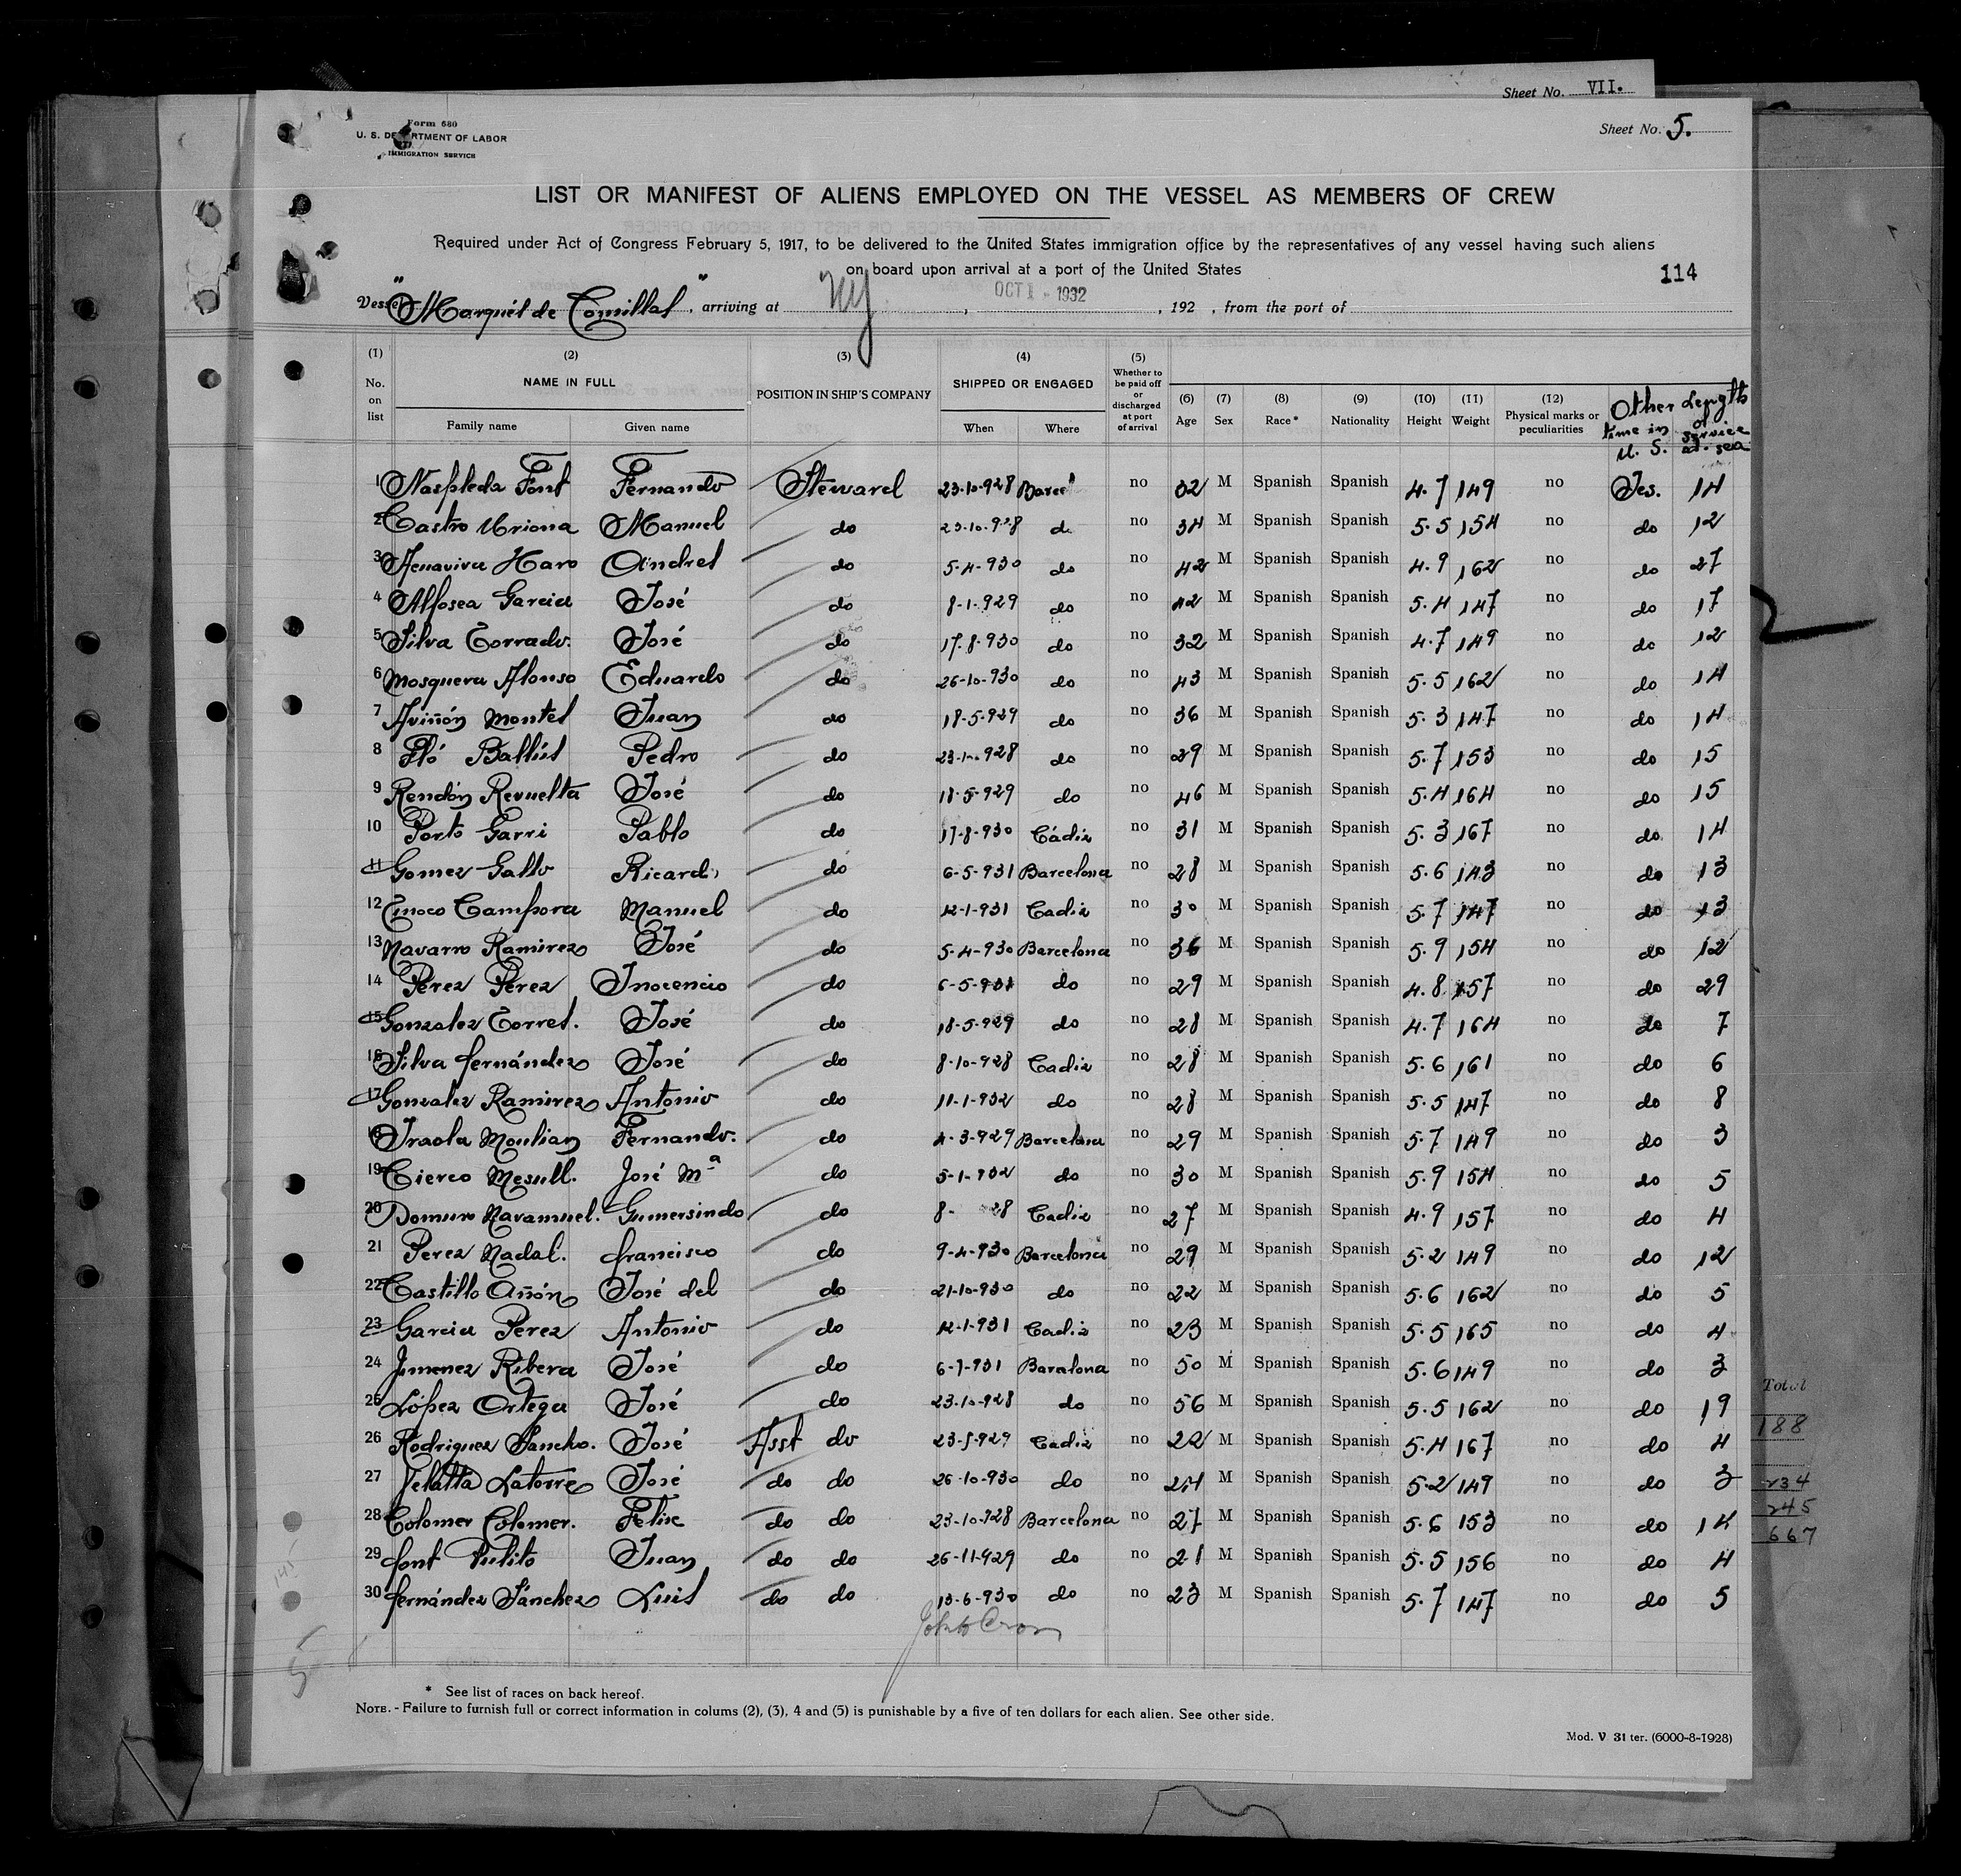 Sheet No. VII.
Form 680
U. S. DEPARTMENT OF LABOR
IMMIGRATION SERVICE
Sheet No. 5.
LIST OR MANIFEST OF ALIENS EMPLOYED ON THE VESSEL AS MEMBERS OF CREW
Required under Act of Congress February 5, 1917, to be delivered to the United States immigration office by the representatives of any vessel having such aliens
on board upon arrival at a port of the United States
114
Vessel "Marqués de Comillas", arriving at NY, OCT 1 - 1932, 192 , from the port of
(1) No. on list (2) NAME IN FULL Family name Given name (3) POSITION IN SHIP'S COMPANY (4) SHIPPED OR ENGAGED When Where (5) Whether to be paid off or discharged at port of arrival (6) Age (7) Sex (8) Race* (9) Nationality (10) Height (11) Weight (12) Physical marks or peculiarities Other time in U. S. Length of service at sea
1 Naspleda Font Fernando Steward 23-10-928 Barcª no 32 M Spanish Spanish 4.7 149 no Yes. 14
2 Castro Uriona Manuel do 23-10-928 d. no 34 M Spanish Spanish 5.5 154 no do 12
3 Acuaviva Haro Andres do 5-4-930 do no 42 M Spanish Spanish 4.9 162 no do 27
4 Alfosea Garcia José do 8-1-929 do no 42 M Spanish Spanish 5.4 147 no do 17
5 Silva Corrado. José do 17-8-930 do no 32 M Spanish Spanish 4.7 149 no do 12
6 Mosquera Alonso Eduardo do 26-10-930 do no 43 M Spanish Spanish 5.5 162 no do 14
7 Aviñón Montes Juan do 18-5-929 do no 36 M Spanish Spanish 5.3 147 no do 14
8 Pló Ballús Pedro do 23-10-928 do no 29 M Spanish Spanish 5.7 153 no do 15
9 Rendón Revuelta José do 18-5-929 do no 46 M Spanish Spanish 5.4 164 no do 15
10 Porto Garri Pablo do 17-8-930 Cádiz no 31 M Spanish Spanish 5.3 167 no do 14
11 Gomez Gallo Ricardo do 6-5-931 Barcelona no 28 M Spanish Spanish 5.6 143 no do 13
12 Tinoco Campora Manuel do 12-1-931 Cadiz no 30 M Spanish Spanish 5.7 147 no do 13
13 Navarro Ramirez José do 5-4-930 Barcelona no 36 M Spanish Spanish 5.9 154 no do 12
14 Perez Pérez Inocencio do 6-5-931 do no 29 M Spanish Spanish 4.8 157 no do 29
15 Gonzalez Torres. José do 18-5-929 do no 28 M Spanish Spanish 4.7 164 no do 7
16 Silva fernández José do 8-10-928 Cadiz no 28 M Spanish Spanish 5.6 161 no do 6
17 Gonzalez Ramirez Antonio do 11-1-932 do no 28 M Spanish Spanish 5.5 147 no do 8
18 Iraola Moulian Fernando. do 4-3-929 Barcelona no 29 M Spanish Spanish 5.7 149 no do 3
19 Cierco Mesull. José Mª do 5-1-932 do no 30 M Spanish Spanish 5.9 154 no do 5
20 Romuro Navamuel. Gumersindo do 8- 28 Cadiz no 27 M Spanish Spanish 4.9 157 no do 4
21 Perez Nadal. francisco do 9-4-930 Barcelona no 29 M Spanish Spanish 5.2 149 no do 12
22 Castillo Añón José del do 21-10-930 do no 22 M Spanish Spanish 5.6 162 no do 5
23 Garcia Perez Antonio do 12-1-931 Cadiz no 23 M Spanish Spanish 5.5 165 no do 4
24 Jimenez Ribera José do 6-7-931 Barcelona no 50 M Spanish Spanish 5.6 149 no do 3
25 López Ortega José do 23-10-928 do no 56 M Spanish Spanish 5.5 162 no do 19
26 Rodriguez Sancho. José Asst do 23-5-929 Cadiz no 22 M Spanish Spanish 5.4 167 no do 4
27 Velatta Latorre José do do 26-10-930 do no 24 M Spanish Spanish 5.2 149 no do 3
28 Colomer Colomer. Felix do do 23-10-928 Barcelona no 27 M Spanish Spanish 5.6 153 no do 14
29 font Pulito Juan do do 26-11-929 do no 21 M Spanish Spanish 5.5 156 no do 4
30 fernández Sánchez Luis do do 13-6-930 do no 23 M Spanish Spanish 5.7 147 no do 5
Total
188
234
245
667
* See list of races on back hereof.
NOTE. - Failure to furnish full or correct information in colums (2), (3), 4 and (5) is punishable by a five of ten dollars for each alien. See other side.
Mod. V 31 ter. (6000-8-1928)